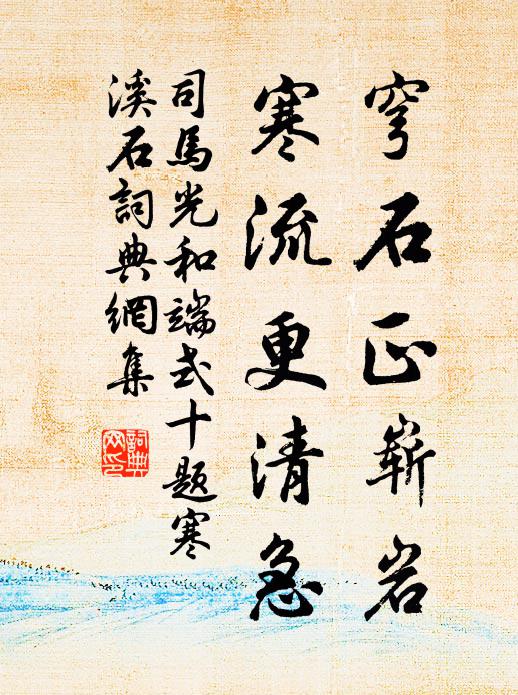 穹石正嶄岩
寒流更清急
司馬光和端式十题寒
溪石詞典網集
詞典